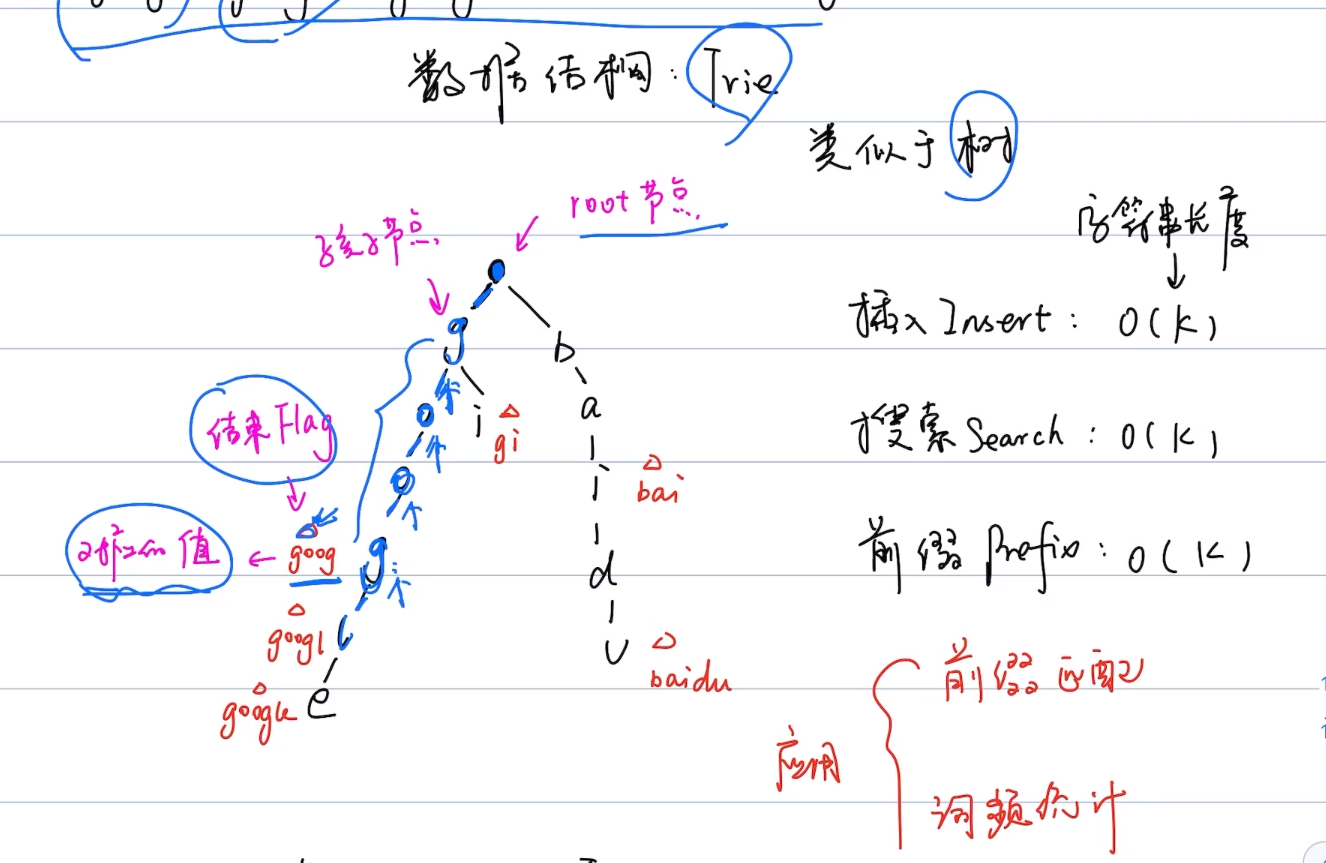 数据结构: Trie
类似于树
root节点
孩子节点
字符串长度
插入 Insert: O(K)
g
b
结束 Flag
o
i
gi
a
搜索 Search: O(K)
o
i
bai
值
goog
g
d
前缀 Prefix: O(K)
googl
l
u
baidu
google
e
前缀匹配
应用
词频统计